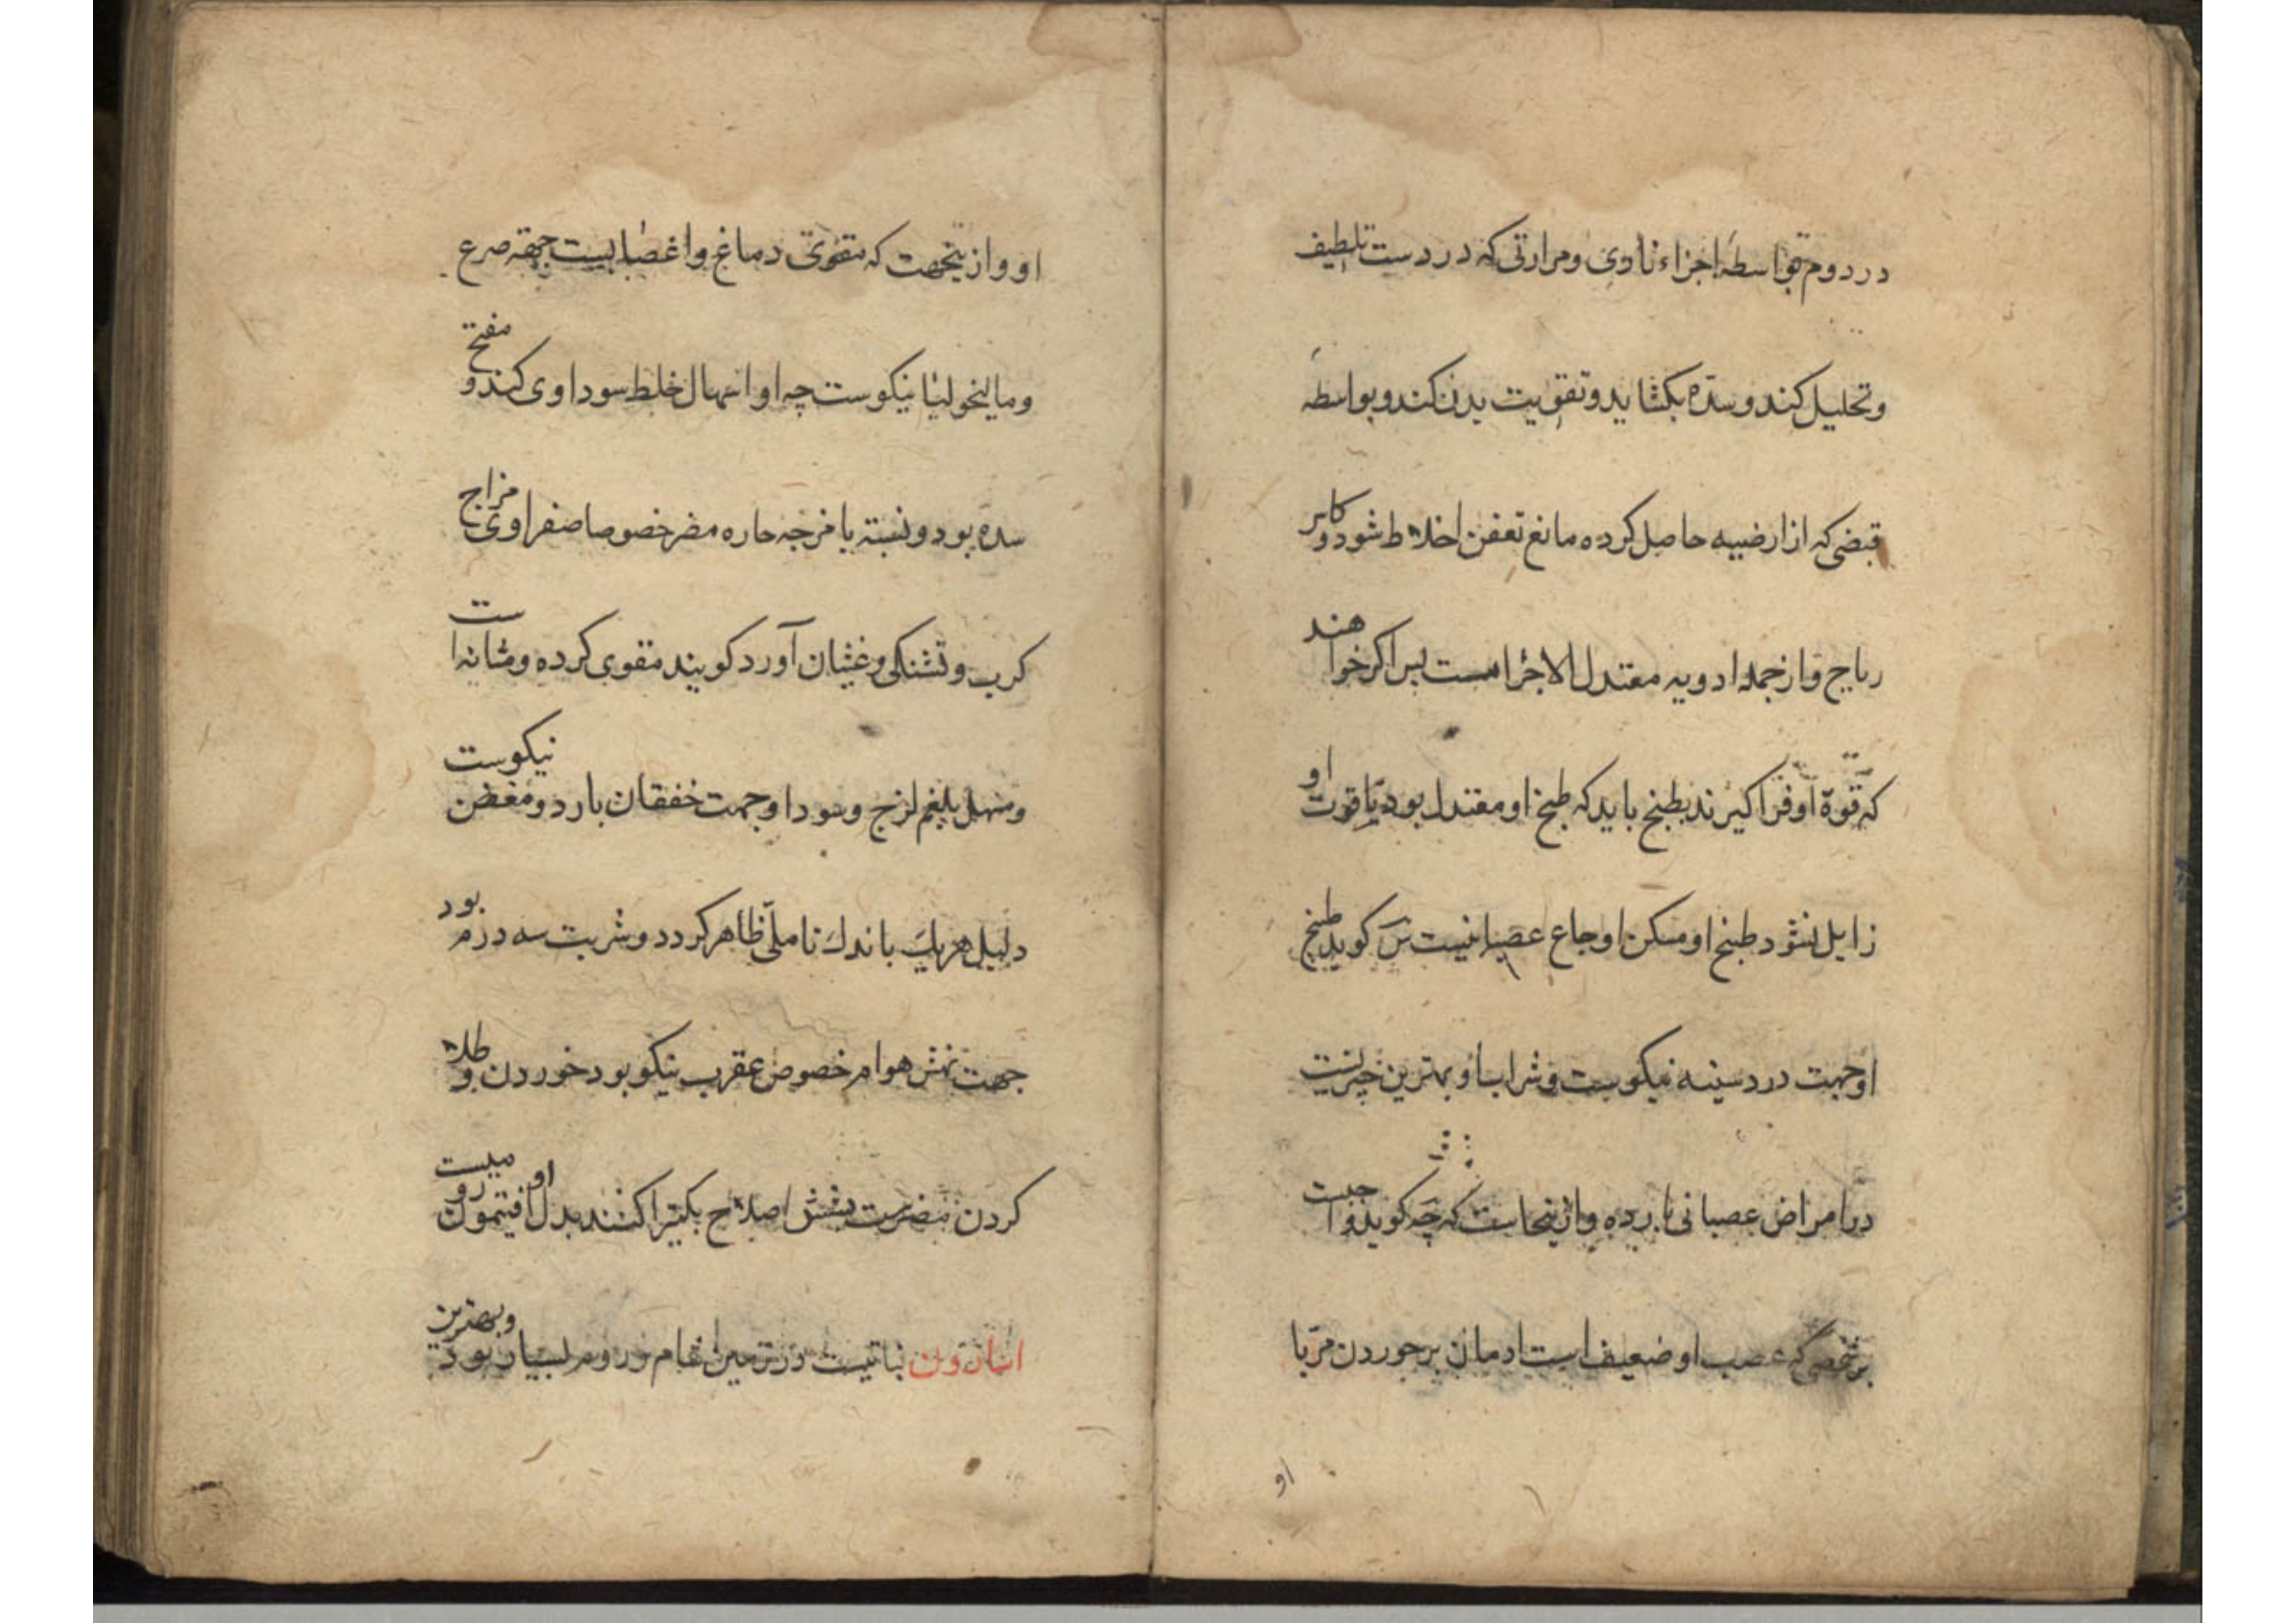 در دوم بواسطهٔ اجزاء ناری و مرارتی که دردست تلطیف
و تحلیل کند و سدّه بکشاید و تقویت بدن کند و بواسطه
قبضی که از ارضییه حاصل کرده مانع تعفن اخلاط شود و کاسر
ریاح و از جمله ادویه معتدل الاجزا است پس اکر خواهند
که قوّة او فرا کیرند بطبخ باید که طبخ او معتدل بود تا قوت او
زایل نشود طبخ او مسکن اوجاع عصبانیست س کوید طبخ
او جهت درد سینه نیکوست و شراب او بهترین چیزیست
در امراض عصبانی بارده و ازینجاست که چه کوید واجبست
بر شخصی که عصب او ضعیف است ادمان بر خوردن مربا
او
او و ازینجهت که مقوی دماغ و اعصابیست جهة صرع
و مالیخولیا نیکوست چه او اسهال خلط سوداوی کند و مفتح
سده بود و نسبة با مزجه حاره مضر خصوصا صفراوی مزاج
کرب و تشنکی و غثیان آورد کویند مقوی کرده و مثانه است
و مسهل بلغم لزج و سودا و جهت خفقان بارد و مغص نیکوست
دلیل هریک باندک تاملی ظاهر کردد و شربت سه درم بود
جهت نهش هوام خصوص عقرب نیکو بود خوردن و طلا
کردن مضرست بشش اصلاح بکتیرا کنند بدل او افتیمون رومیست
اسارون نباتیست در زمین شام و روم بسیار بود و بهترین